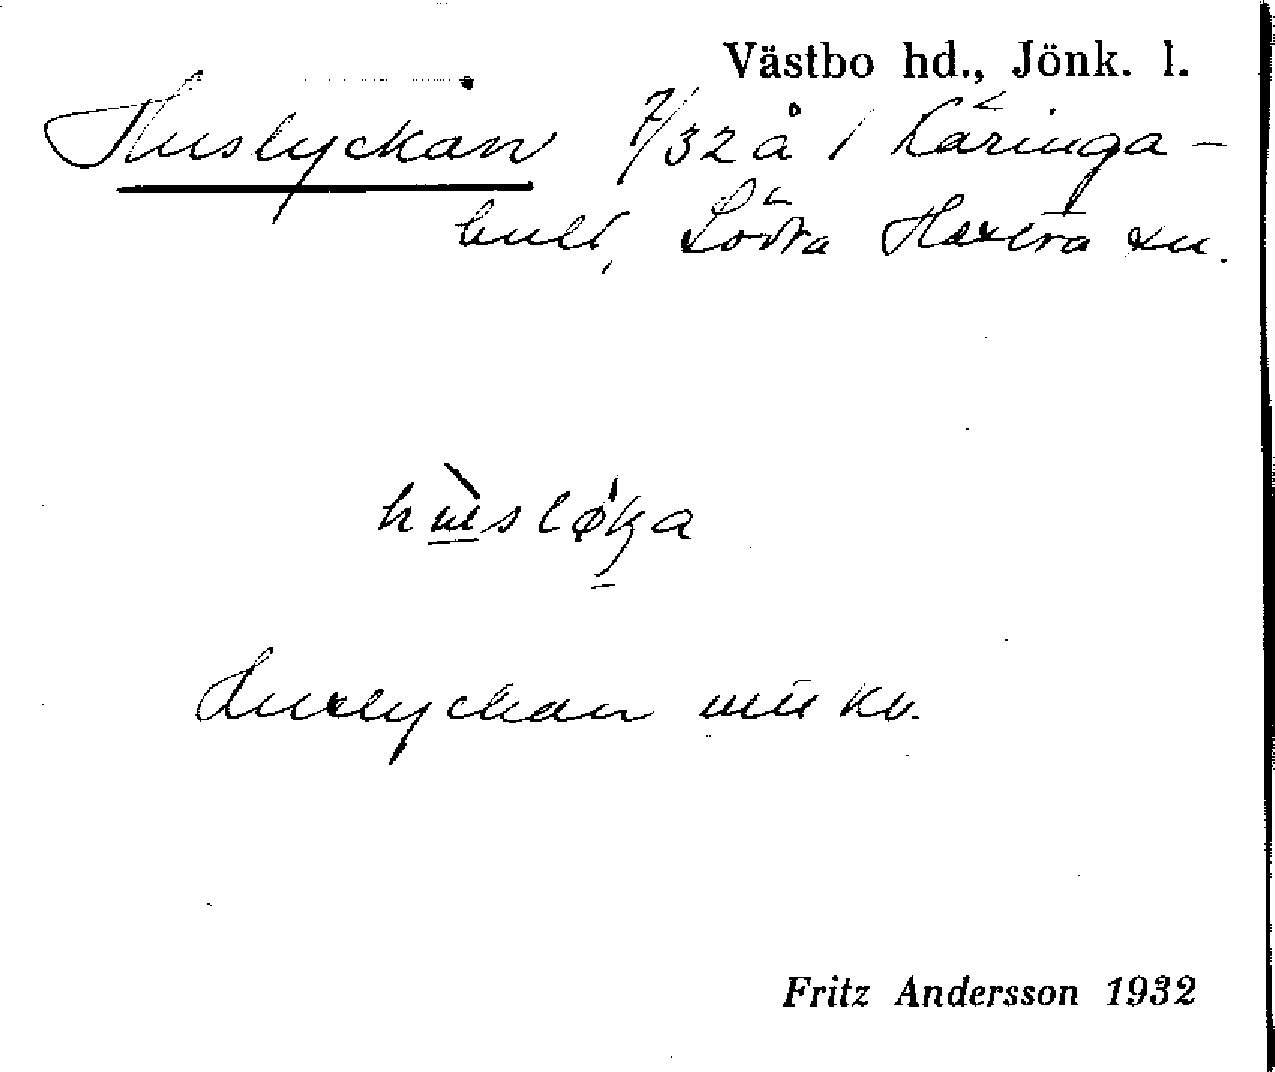 Västbo hd., Jönk. l.
Huslyckan 7/32 å 1 Käringa-
hult, Södra Hestra sn.
hùsløka
Huslyckan mtl kv.
Fritz Andersson 1932